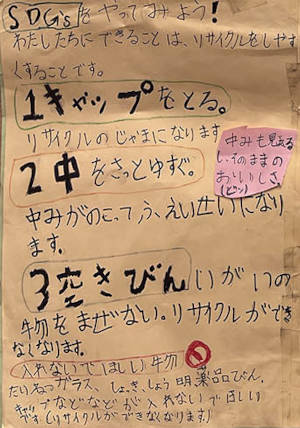 SDGsをやってみよう!
わたしたちにできることは、リサイクルをしやす
くすることです。
1キャップをとる。
リサイクルのじゃまになります
2中をさっとゆすぐ。
中みも見える
しそのままの
おいしさ
(ビン)
中みがのこって、ふえいせいになり
ます。
3空きびんいがいの
物をまぜない。リサイクルができ
なくなります。
入れないでほしい物
たいねつガラス、しょっき、しょう明薬品びん、
キャップなどなどが入れないでほしい
です(リサイクルができなくなります。)